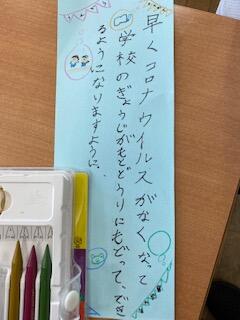 早くコロナウイルスがなくなって
学校のぎょうじがもとどうりにもどって、でき
るようになりますように、